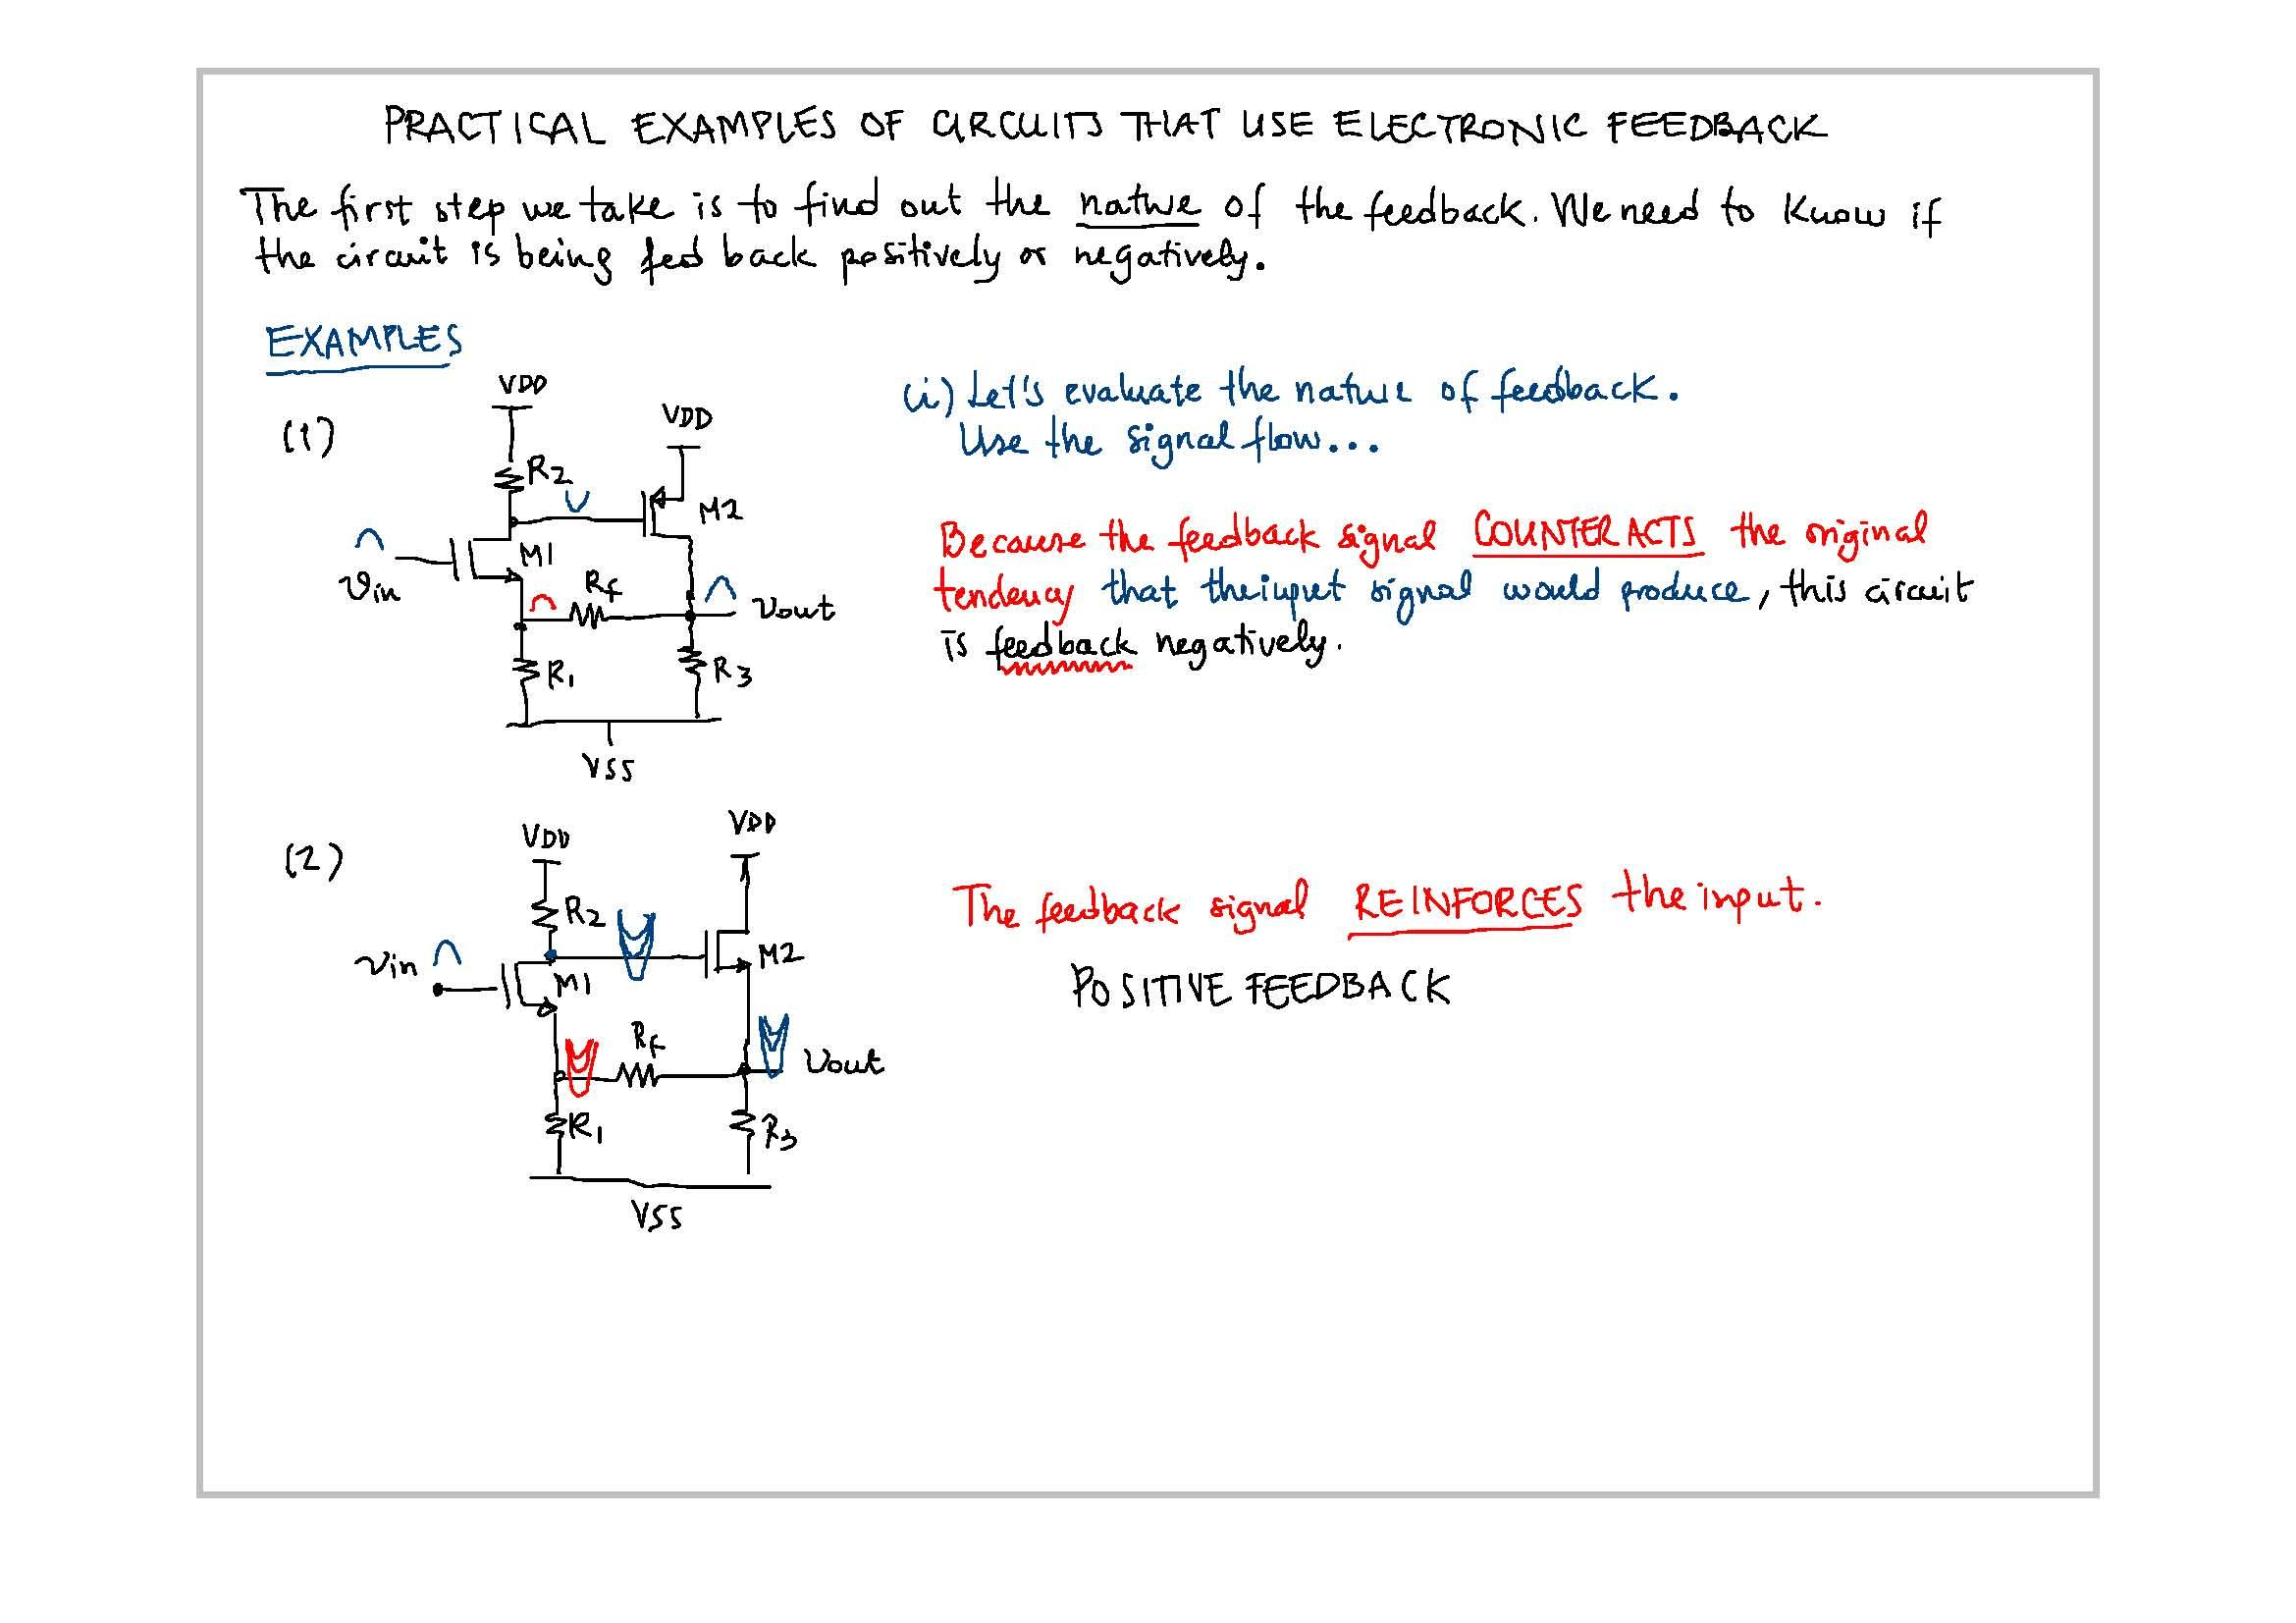 PRACTICAL EXAMPLES OF CIRCUITS THAT USE ELECTRONIC FEEDBACK
The first step we take is to find out the nature of the feedback. We need to know if
the circuit is being feed back positively or negatively.
EXAMPLES
(1)
VDD
VDD
R2
M2
M1
vin
Rf
Vout
R1
R3
VSS
(i) Let's evaluate the nature of feedback.
Use the signal flow...
Because the feedback signal COUNTERACTS the original
tendency that the input signal would produce, this circuit
is feedback negatively.
(2)
VDD
VDD
R2
vin
M1
M2
Rf
Vout
R1
R3
VSS
The feedback signal REINFORCES the input.
POSITIVE FEEDBACK